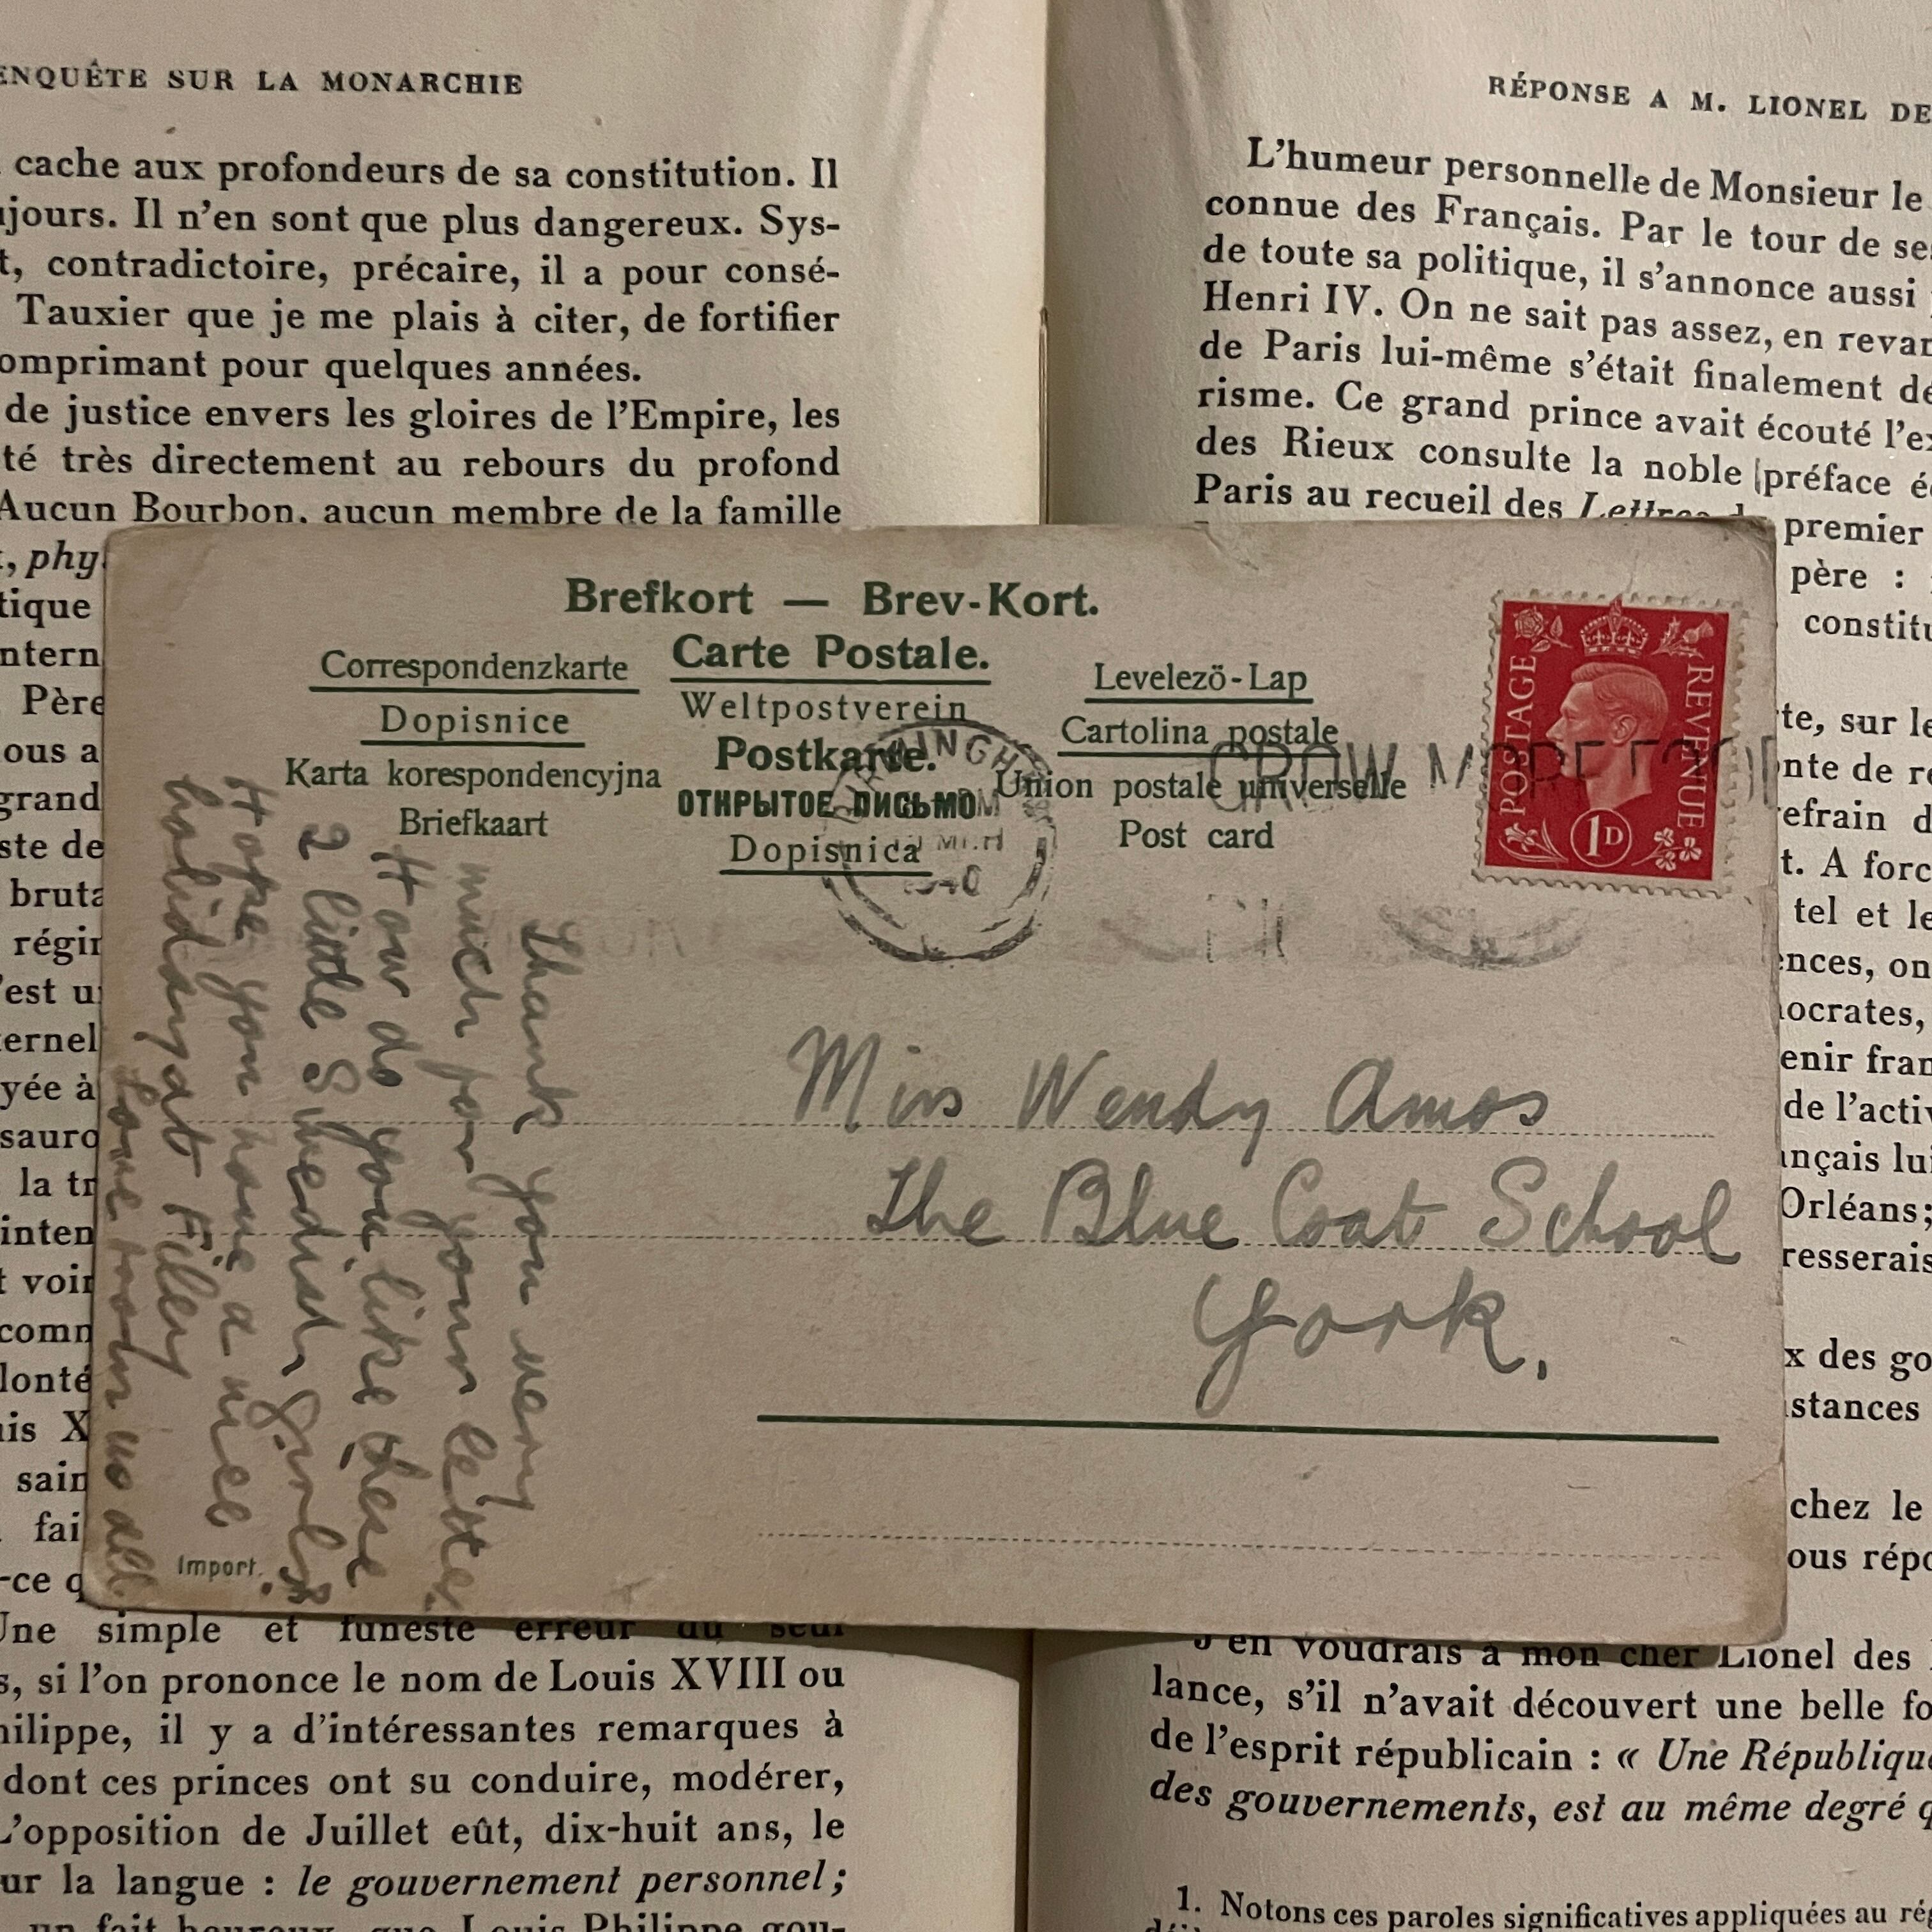 ENQUÊTE SUR LA MONARCHIE
cache aux profondeurs de sa constitution. Il
ujours. Il n'en sont que plus dangereux. Sys-
t, contradictoire, précaire, il a pour consé-
Tauxier que je me plais à citer, de fortifier
omprimant pour quelques années.
de justice envers les gloires de l'Empire, les
té très directement au rebours du profond
Aucun Bourbon, aucun membre de la famille
, phy
tique
ntern
Père
ous a
grand
ste de
bruta
régir
'est u
ernel
yée à
sauro
la tr
inten
t voir
comm
lonté
is X
sain
fai
-ce q
Une simple et funeste erreur du seul
s, si l'on prononce le nom de Louis XVIII ou
hilippe, il y a d'intéressantes remarques à
dont ces princes ont su conduire, modérer,
L'opposition de Juillet eût, dix-huit ans, le
ur la langue : le gouvernement personnel ;
un fait heureux, que Louis-Philippe gou-
RÉPONSE A M. LIONEL DE
L'humeur personnelle de Monsieur le
connue des Français. Par le tour de se
de toute sa politique, il s'annonce aussi
Henri IV. On ne sait pas assez, en revan
de Paris lui-même s'était finalement dé
risme. Ce grand prince avait écouté l'ex
des Rieux consulte la noble préface é
Paris au recueil des Lettres du premier
père :
constitu
te, sur le
nte de re
refrain d
t. A forc
tel et le
ences, on
ocrates,
enir fran
de l'activ
nçais lui
Orléans;
resserais
x des go
stances
chez le
ous répo
J'en voudrais à mon cher Lionel des
lance, s'il n'avait découvert une belle fo
de l'esprit républicain : « Une République
des gouvernements, est au même degré q
1. Notons ces paroles significatives appliquées au rég
Brefkort — Brev-Kort.
Carte Postale.
Weltpostverein
Postkarte.
ОТКРЫТОЕ ПИСЬМО
Dopisnica
Correspondenzkarte
Dopisnice
Karta korespondencyjna
Briefkaart
Levelezö-Lap
Cartolina postale
Union postale universelle
Post card
POSTAGE
REVENUE
1D
GROW MORE FOOD
1940
Thank you very
much for your letter.
How do you like these
2 little Swedish Girls?
Hope you have a nice
holiday at Filey
Love from us all.
Miss Wendy Amos
The Blue Coat School
York.
Import.